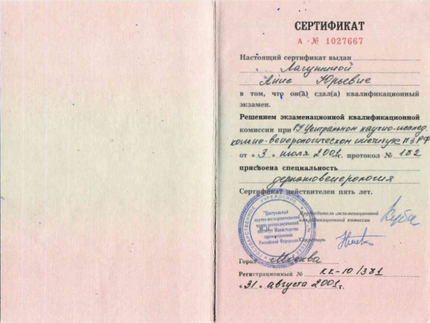 СЕРТИФИКАТ
А № 1027667
Настоящий сертификат выдан
Лагутиной
Анне Юрьевне
в том, что он(а) сдал(а) квалификационный
экзамен.
Решением экзаменационной квалификационной
комиссии при Центральном научно-исслед.
кожно-венерологическом институте МЗ РФ
от "3" июля 2001г. протокол № 182
присвоена специальность
дерматовенерология
Сертификат действителен пять лет.
Председатель экзаменационной
квалификационной комиссии
Секретарь
Город Москва
Регистрационный № КК-10/381
"31" августа 2001г.